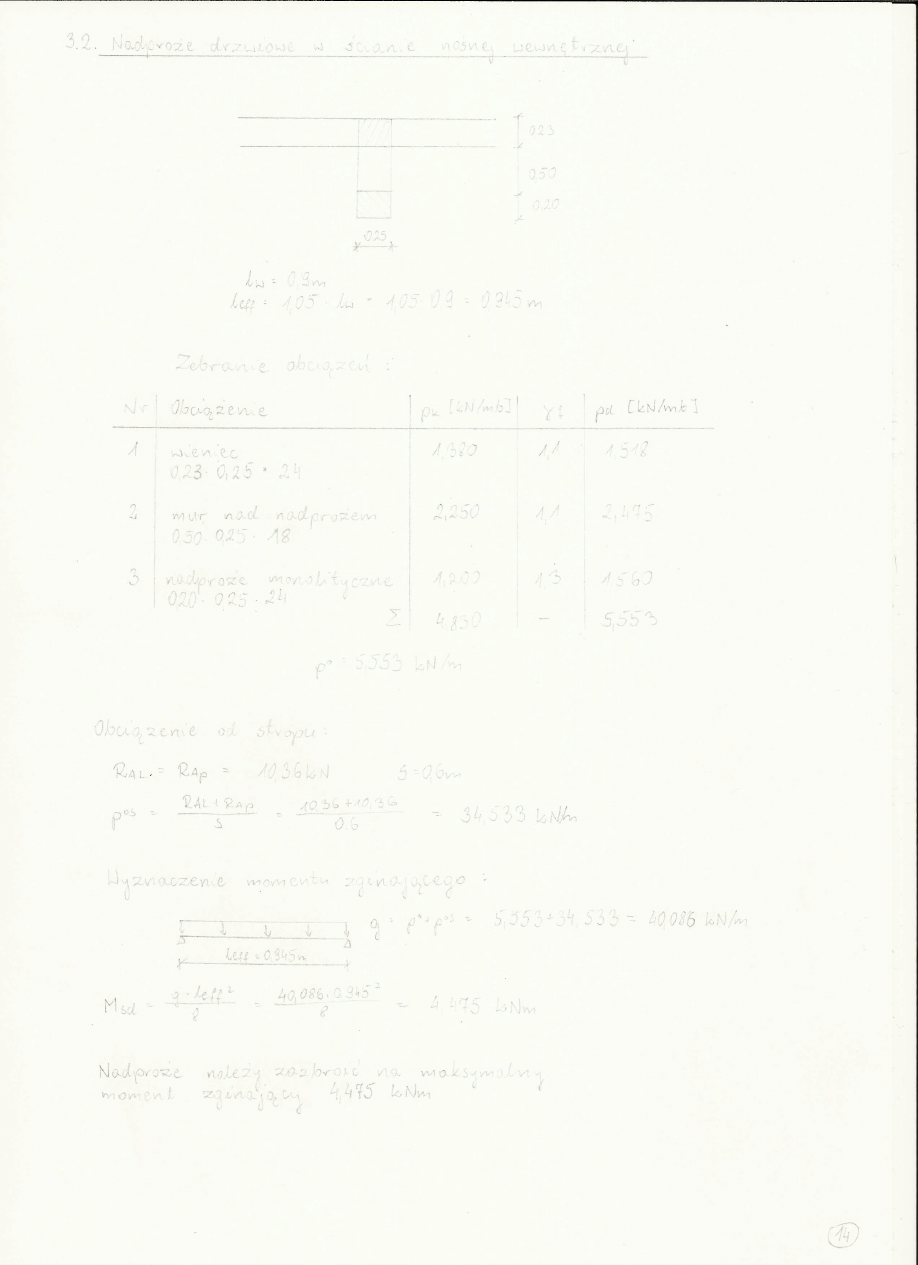 3.2. Nadproże drzwiowe w ścianie nośnej wewnętrznej
0,23
0,50
0,20
0,25
lw = 0.9m
leff = 1,05 · lw = 1,05 · 0.9 = 0,945 m
Zebranie obciążeń :
Nr Obciążenie pk [kN/mb] γf pd [kN/mb]
1 wieniec 1,380 1,1 1,518
0,23 · 0,25 · 24
2 mur nad nadprożem 2,250 1,1 2,475
0,50 · 0,25 · 18
3 nadproże monolityczne 1,200 1,3 1,560
0,20 · 0,25 · 24
Σ 4,830 – 5,553
p° = 5,553 kN/m
Obciążenie od stropu :
RAL = RAp = 10,36 kN S = 0,6m
p°s = RAL + RAp / S = 10,36 + 10,36 / 0.6 = 34,533 kN/m
Wyznaczenie momentu zginającego :
g = p° + p°s = 5,553 + 34,533 = 40,086 kN/m
leff = 0,945m
Msd = g · leff² / 8 = 40,086 · 0,945² / 8 = 4,475 kNm
Nadproże należy zazbroić na maksymalny
moment zginający 4,475 kNm
14